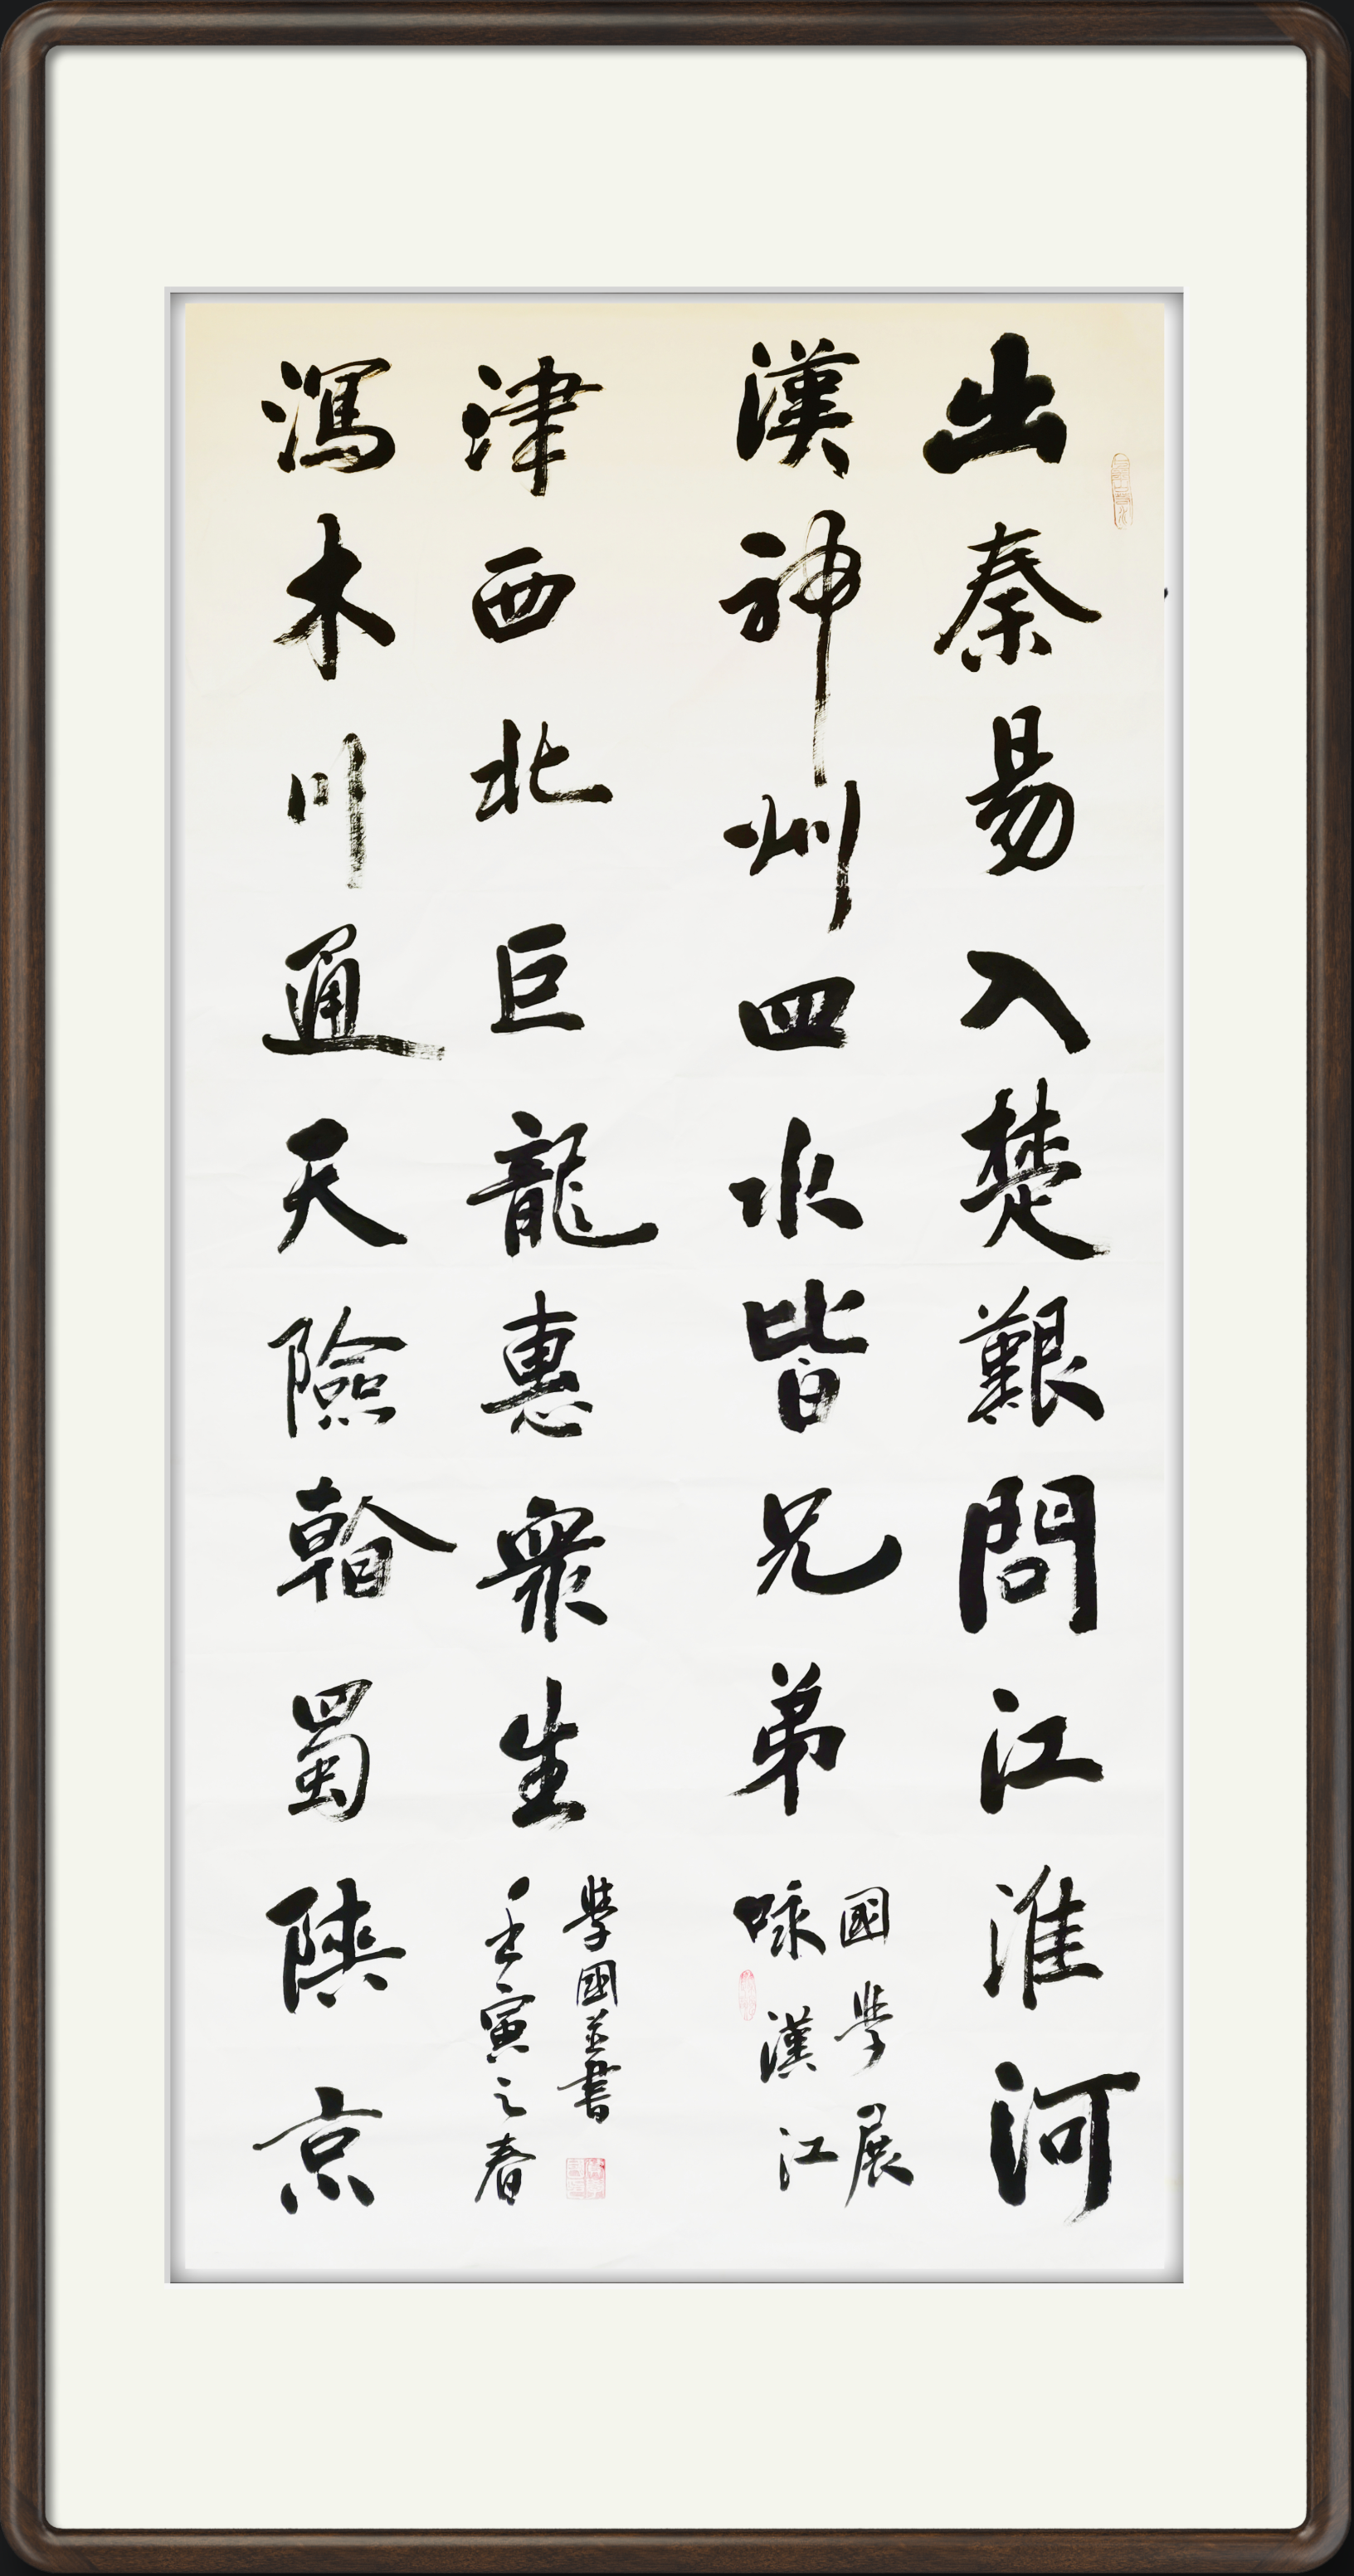 出秦易入楚艱問江淮河
漢神州四水皆兄弟
國學展
咏漢江
瀉木川通天險翰蜀陝京
津西北巨龍惠衆生
學國並書
壬寅之春